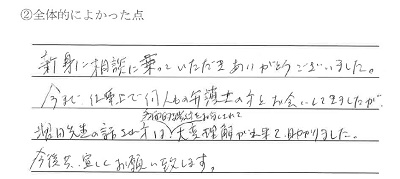 ②全体的によかった点
新身に相談に乗っていただきありがとうございました。
今まで仕事上で何人もの弁護士の方とお会いしてきましたが、
先生の話し方は大変理解が出来て助かりました。
今後共、宜しくお願い致します。